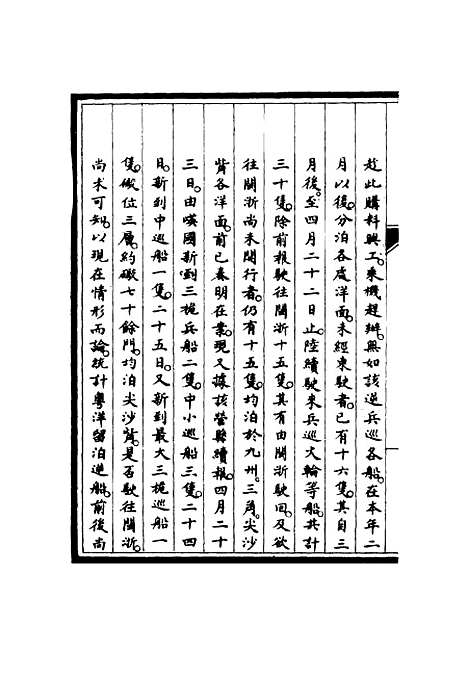 趁此購料興工。乘機趕辦。無如該逆兵巡各船。在本年二
月以後。分泊各處洋面。未經東駛者。已有十六隻。其自三
月後。至四月二十二日止。陸續駛來兵巡火輪等船。共計
三十隻。除前報駛往閩浙十五隻。其有由閩浙駛回。及欲
往閩浙尚未開行者。仍有十五隻。均泊於九州。三角。尖沙
嘴各洋面。前已奏明在案。現又據該營縣續報。四月二十
三日。由㗸國新到三桅兵船二隻。中小巡船三隻。二十四
日。新到中巡船一隻。二十五日。又新到最大三桅巡船一
隻。礮位三層。約礮七十餘門。均泊尖沙嘴。是否駛往閩浙。
尚未可知。以現在情形而論。統計粵洋留泊逆船。前後尚